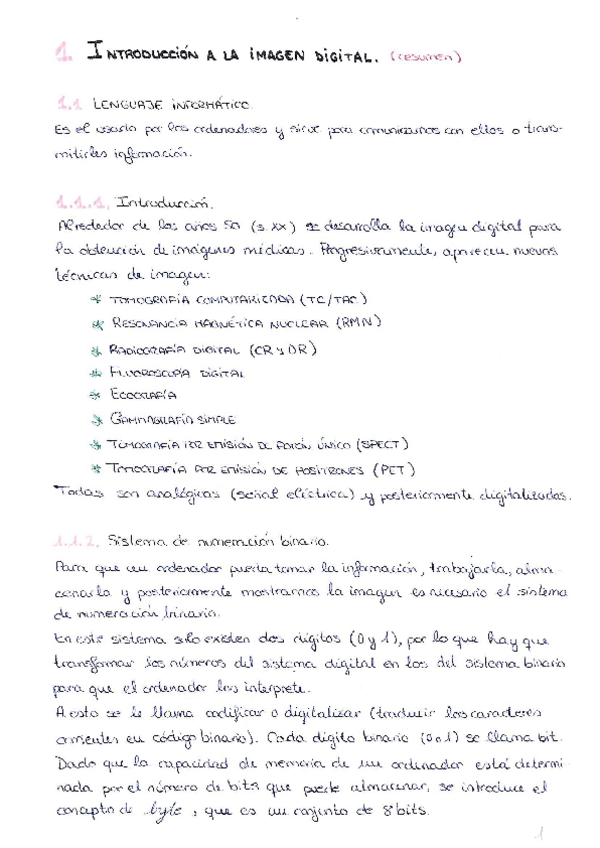 1. INTRODUCCIÓN A LA IMAGEN DIGITAL. (resumen)
1.1 LENGUAJE INFORMÁTICO.
Es el usado por los ordenadores y sirve para comunicarnos con ellos o trans-
mitirles información.
1.1.1. Introducción.
Alrededor de los años 50 (s. XX) se desarrolla la imagen digital para
la obtención de imágenes médicas. Progresivamente, aparecen nuevas
técnicas de imagen:
* TOMOGRAFÍA COMPUTARIZADA (TC/TAC)
* RESONANCIA MAGNÉTICA NUCLEAR (RMN)
* RADIOGRAFÍA DIGITAL (CR y DR)
* FLUOROSCOPIA DIGITAL
* ECOGRAFÍA
* GAMMAGRAFÍA SIMPLE
* TOMOGRAFÍA POR EMISIÓN DE FOTÓN ÚNICO (SPECT)
* TOMOGRAFÍA POR EMISIÓN DE POSITRONES (PET)
Todas son analógicas (señal eléctrica) y posteriormente digitalizadas.
1.1.2. Sistema de numeración binario.
Para que un ordenador pueda tomar la información, trabajarla, alma-
cenarla y posteriormente mostrarnos la imagen es necesario el sistema
de numeración binario.
En este sistema solo existen dos dígitos (0 y 1), por lo que hay que
transformar los números del sistema digital en los del sistema binario
para que el ordenador los interprete.
A esto se le llama codificar o digitalizar (traducir los caracteres
corrientes en código binario). Cada dígito binario (0 o 1) se llama bit.
Dado que la capacidad de memoria de un ordenador está determi-
nada por el número de bits que puede almacenar, se introduce el
concepto de byte, que es un conjunto de 8 bits.
1